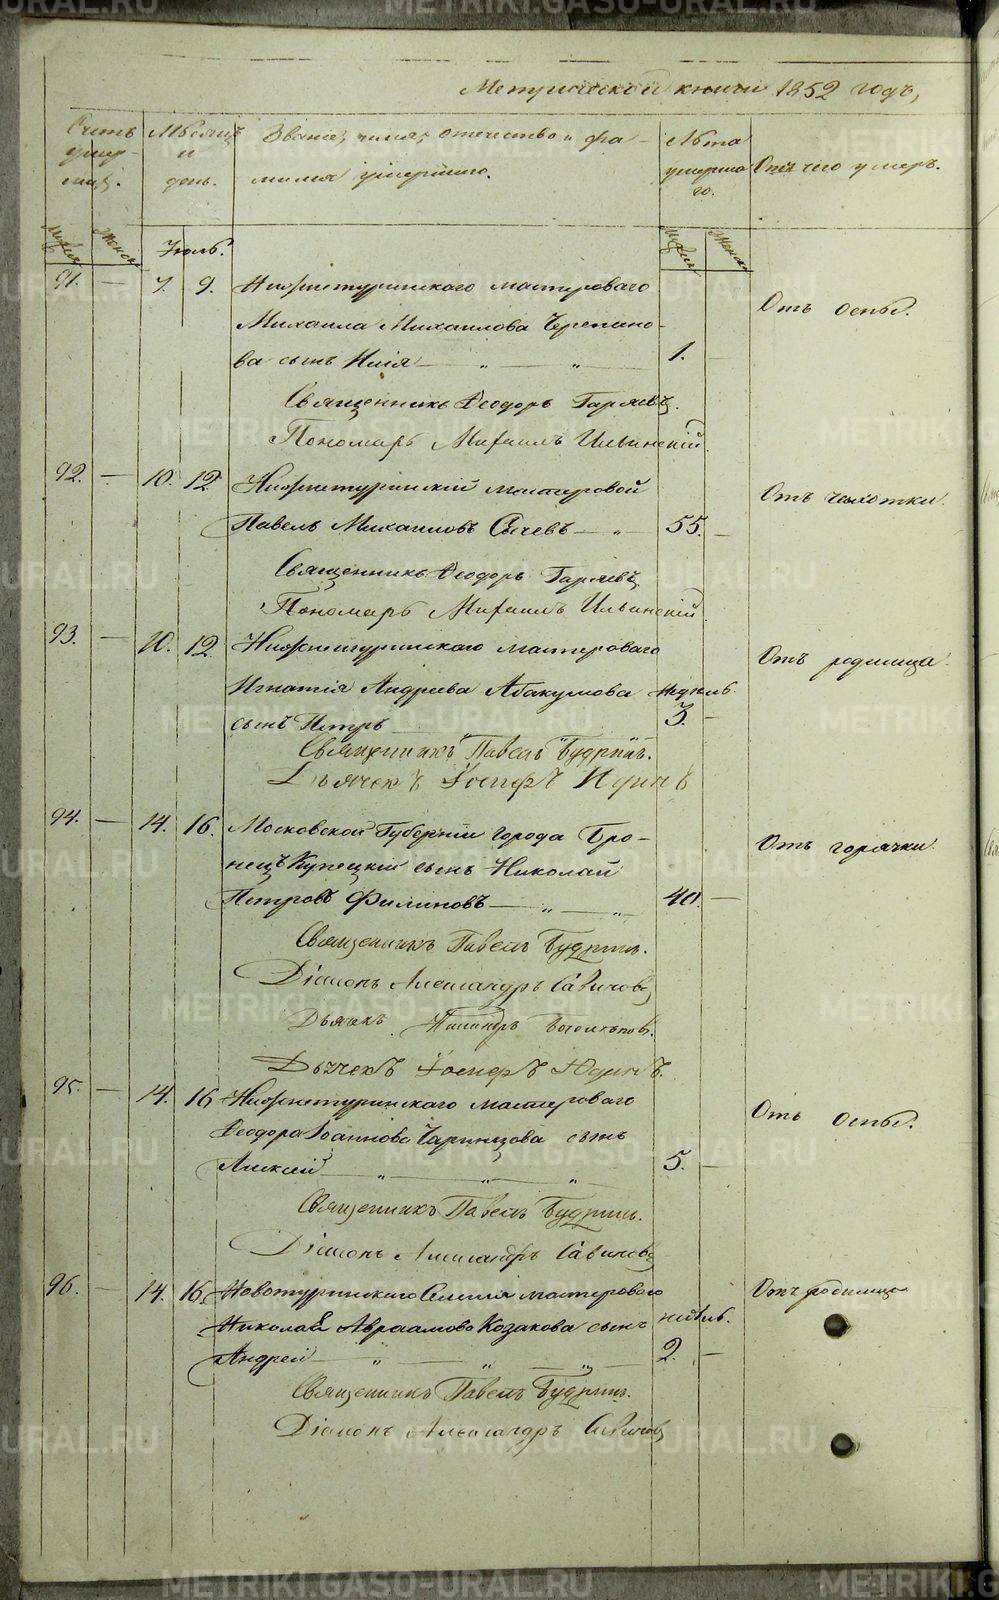 Метрической книги 1852 годъ,
Счетъ умершихъ. Мѣсяцъ и день. Званіе, имя, отечество и фамилія умершаго. Лѣта умершаго. Отъ чего умеръ.
Мужск Женск Іюль. Мужск Женск
91. — 7. 9. Нижнетуринскаго мастероваго
Михаила Михаилова Черепано- Отъ оспы.
ва сынъ Илія — „ — „ 1.
Священникъ Ѳеодоръ Гаряевъ.
Пономарь Михаилъ Ильинскій.
92. — 10. 12. Нижнетуринскій мастеровой Отъ чахотки.
Павелъ Михаиловъ Сычевъ — „ 55. —
Священникъ Ѳеодоръ Гаряевъ
Пономарь Михаилъ Ильинскій.
93. — 10. 12. Нижнетуринскаго мастероваго Отъ родимца.
Игнатія Андреева Абакумова недѣль.
сынъ Петръ 3. —
Священникъ Павелъ Будринъ.
Дьячекъ Іосифъ Юдинъ
94. — 14. 16. Московской Губерніи города Бро- Отъ горячки.
нецъ Купецкій сынъ Николай
Петровъ Филиновъ — „ — „ 40. —
Священникъ Павелъ Будринъ.
Діаконъ Александръ Савичевъ
Дьячекъ
Дьячекъ Іосифъ Юдинъ.
95. — 14. 16 Нижнетуринскаго мастероваго Отъ оспы.
Ѳеодора Іоаннова сынъ
Алексій — „ — „ — „ 5. —
Священникъ Павелъ Будринъ.
Діаконъ Александръ Савичевъ
96. — 14. 16. Новотуринскаго Селенія мастероваго Отъ родимца
Николая Авраамова Козакова сынъ недѣль.
Андрей — „ — „ — „ 2. —
Священникъ Павелъ Будринъ.
Діаконъ Александръ Савичевъ
METRIKI.GASO-URAL.RU